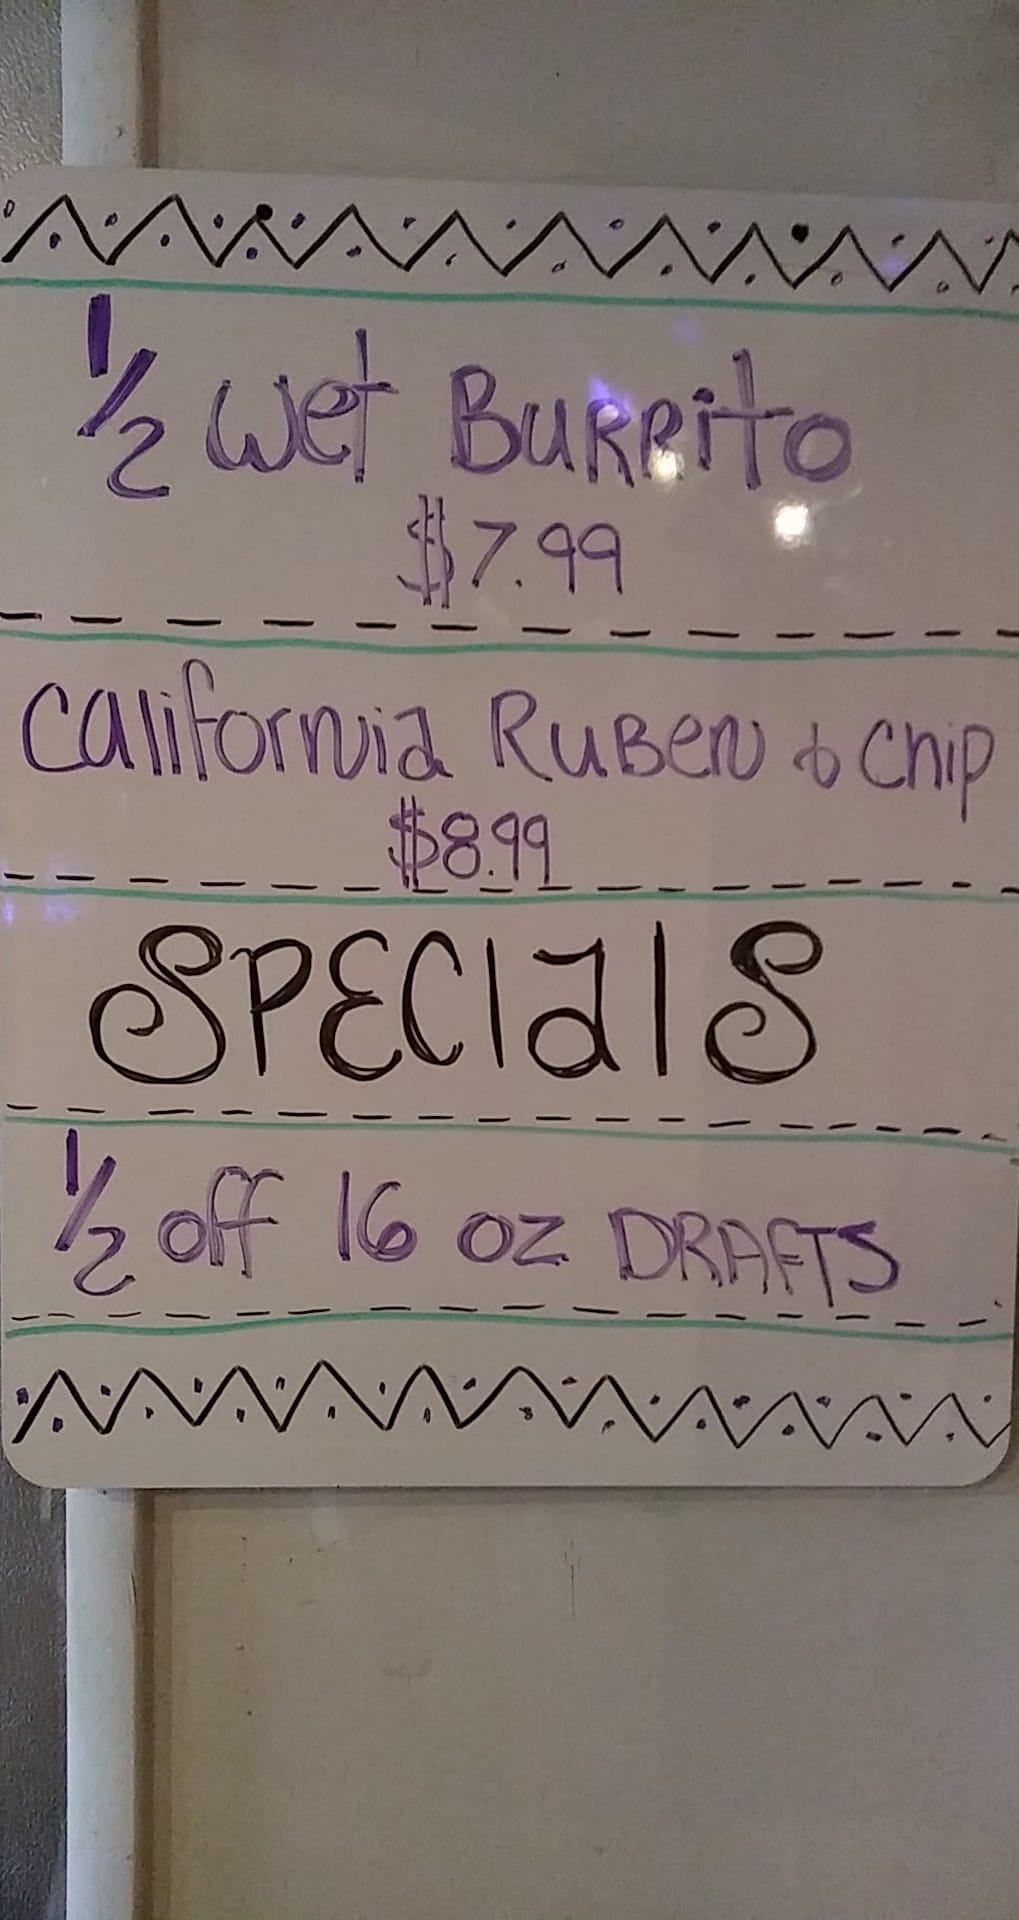 1/2 Wet Burrito
$7.99
California Ruben & Chip
$8.99
SPECIALS
1/2 off 16 oz DRAFTS